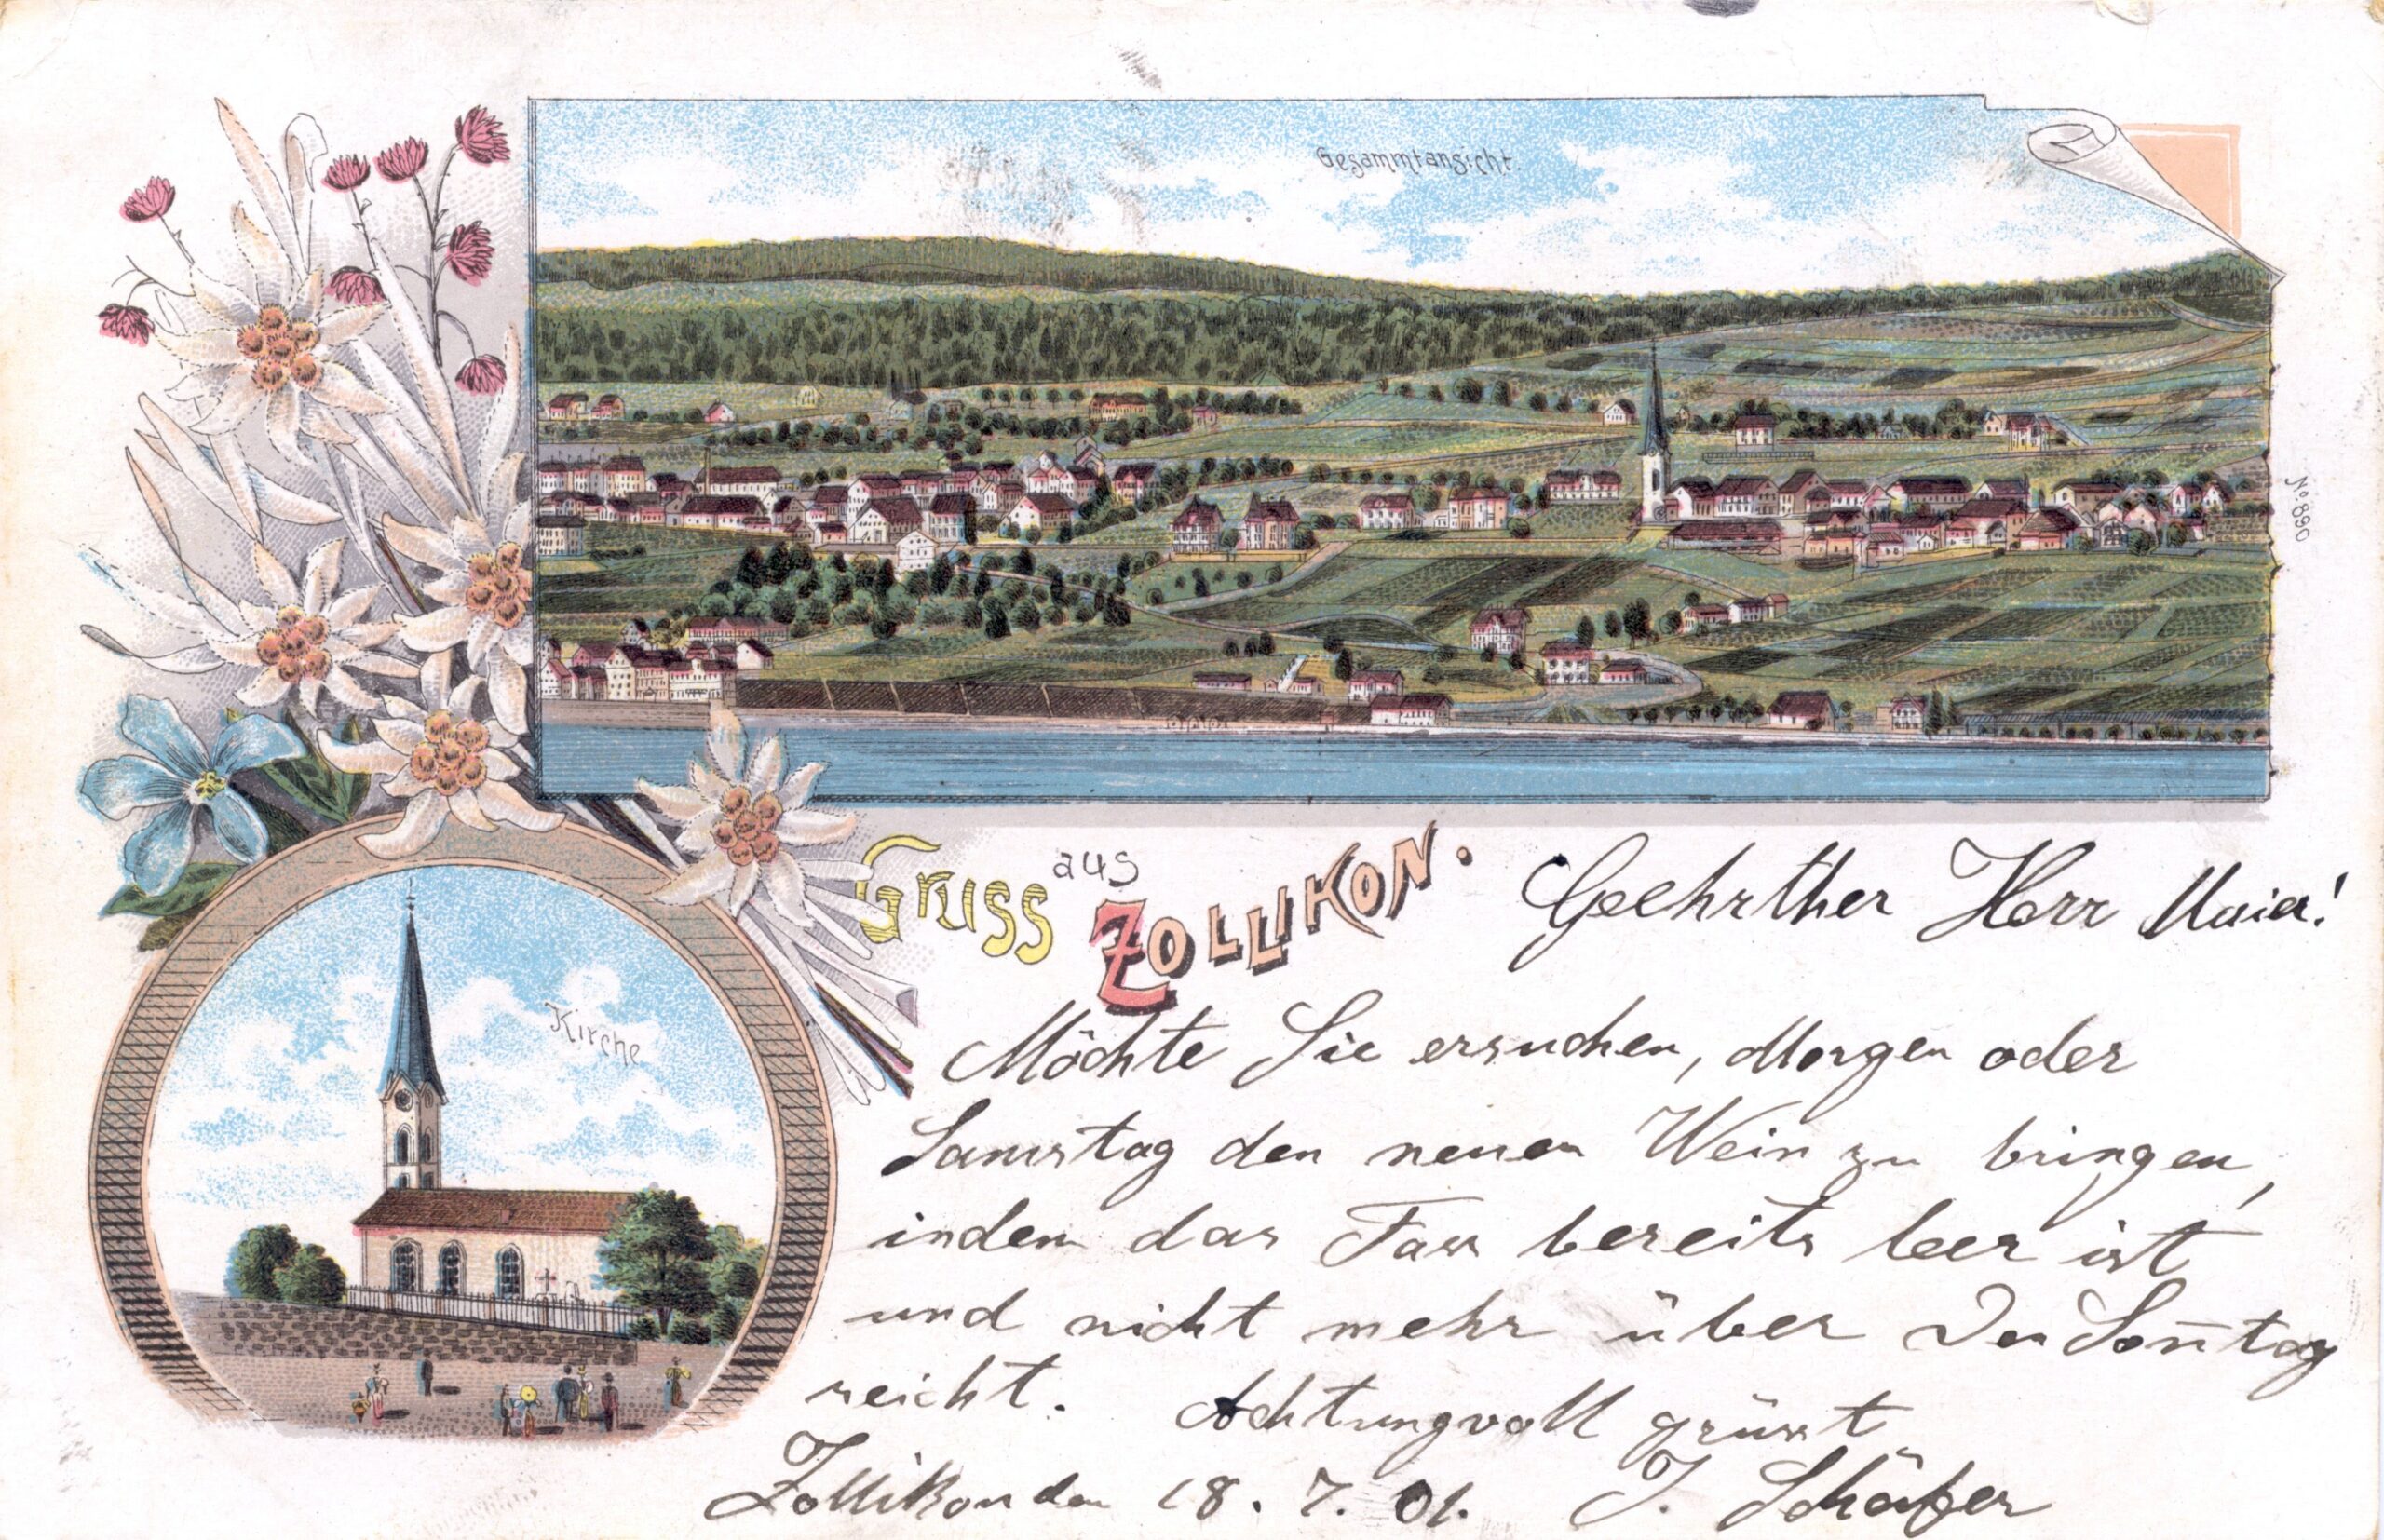 Gesammtansicht.
No. 890
Gruss aus Zollikon.
Kirche
Geehrther Herr Maier!
Möchte Sie ersuchen, Morgen oder
Samstag den neuen Wein zu bringen,
indem das Fass bereits leer ist
und nicht mehr über Den Soñtag
reicht. Achtungvoll grüsst
Zollikon den 18. 7. 01. J. Schäfer